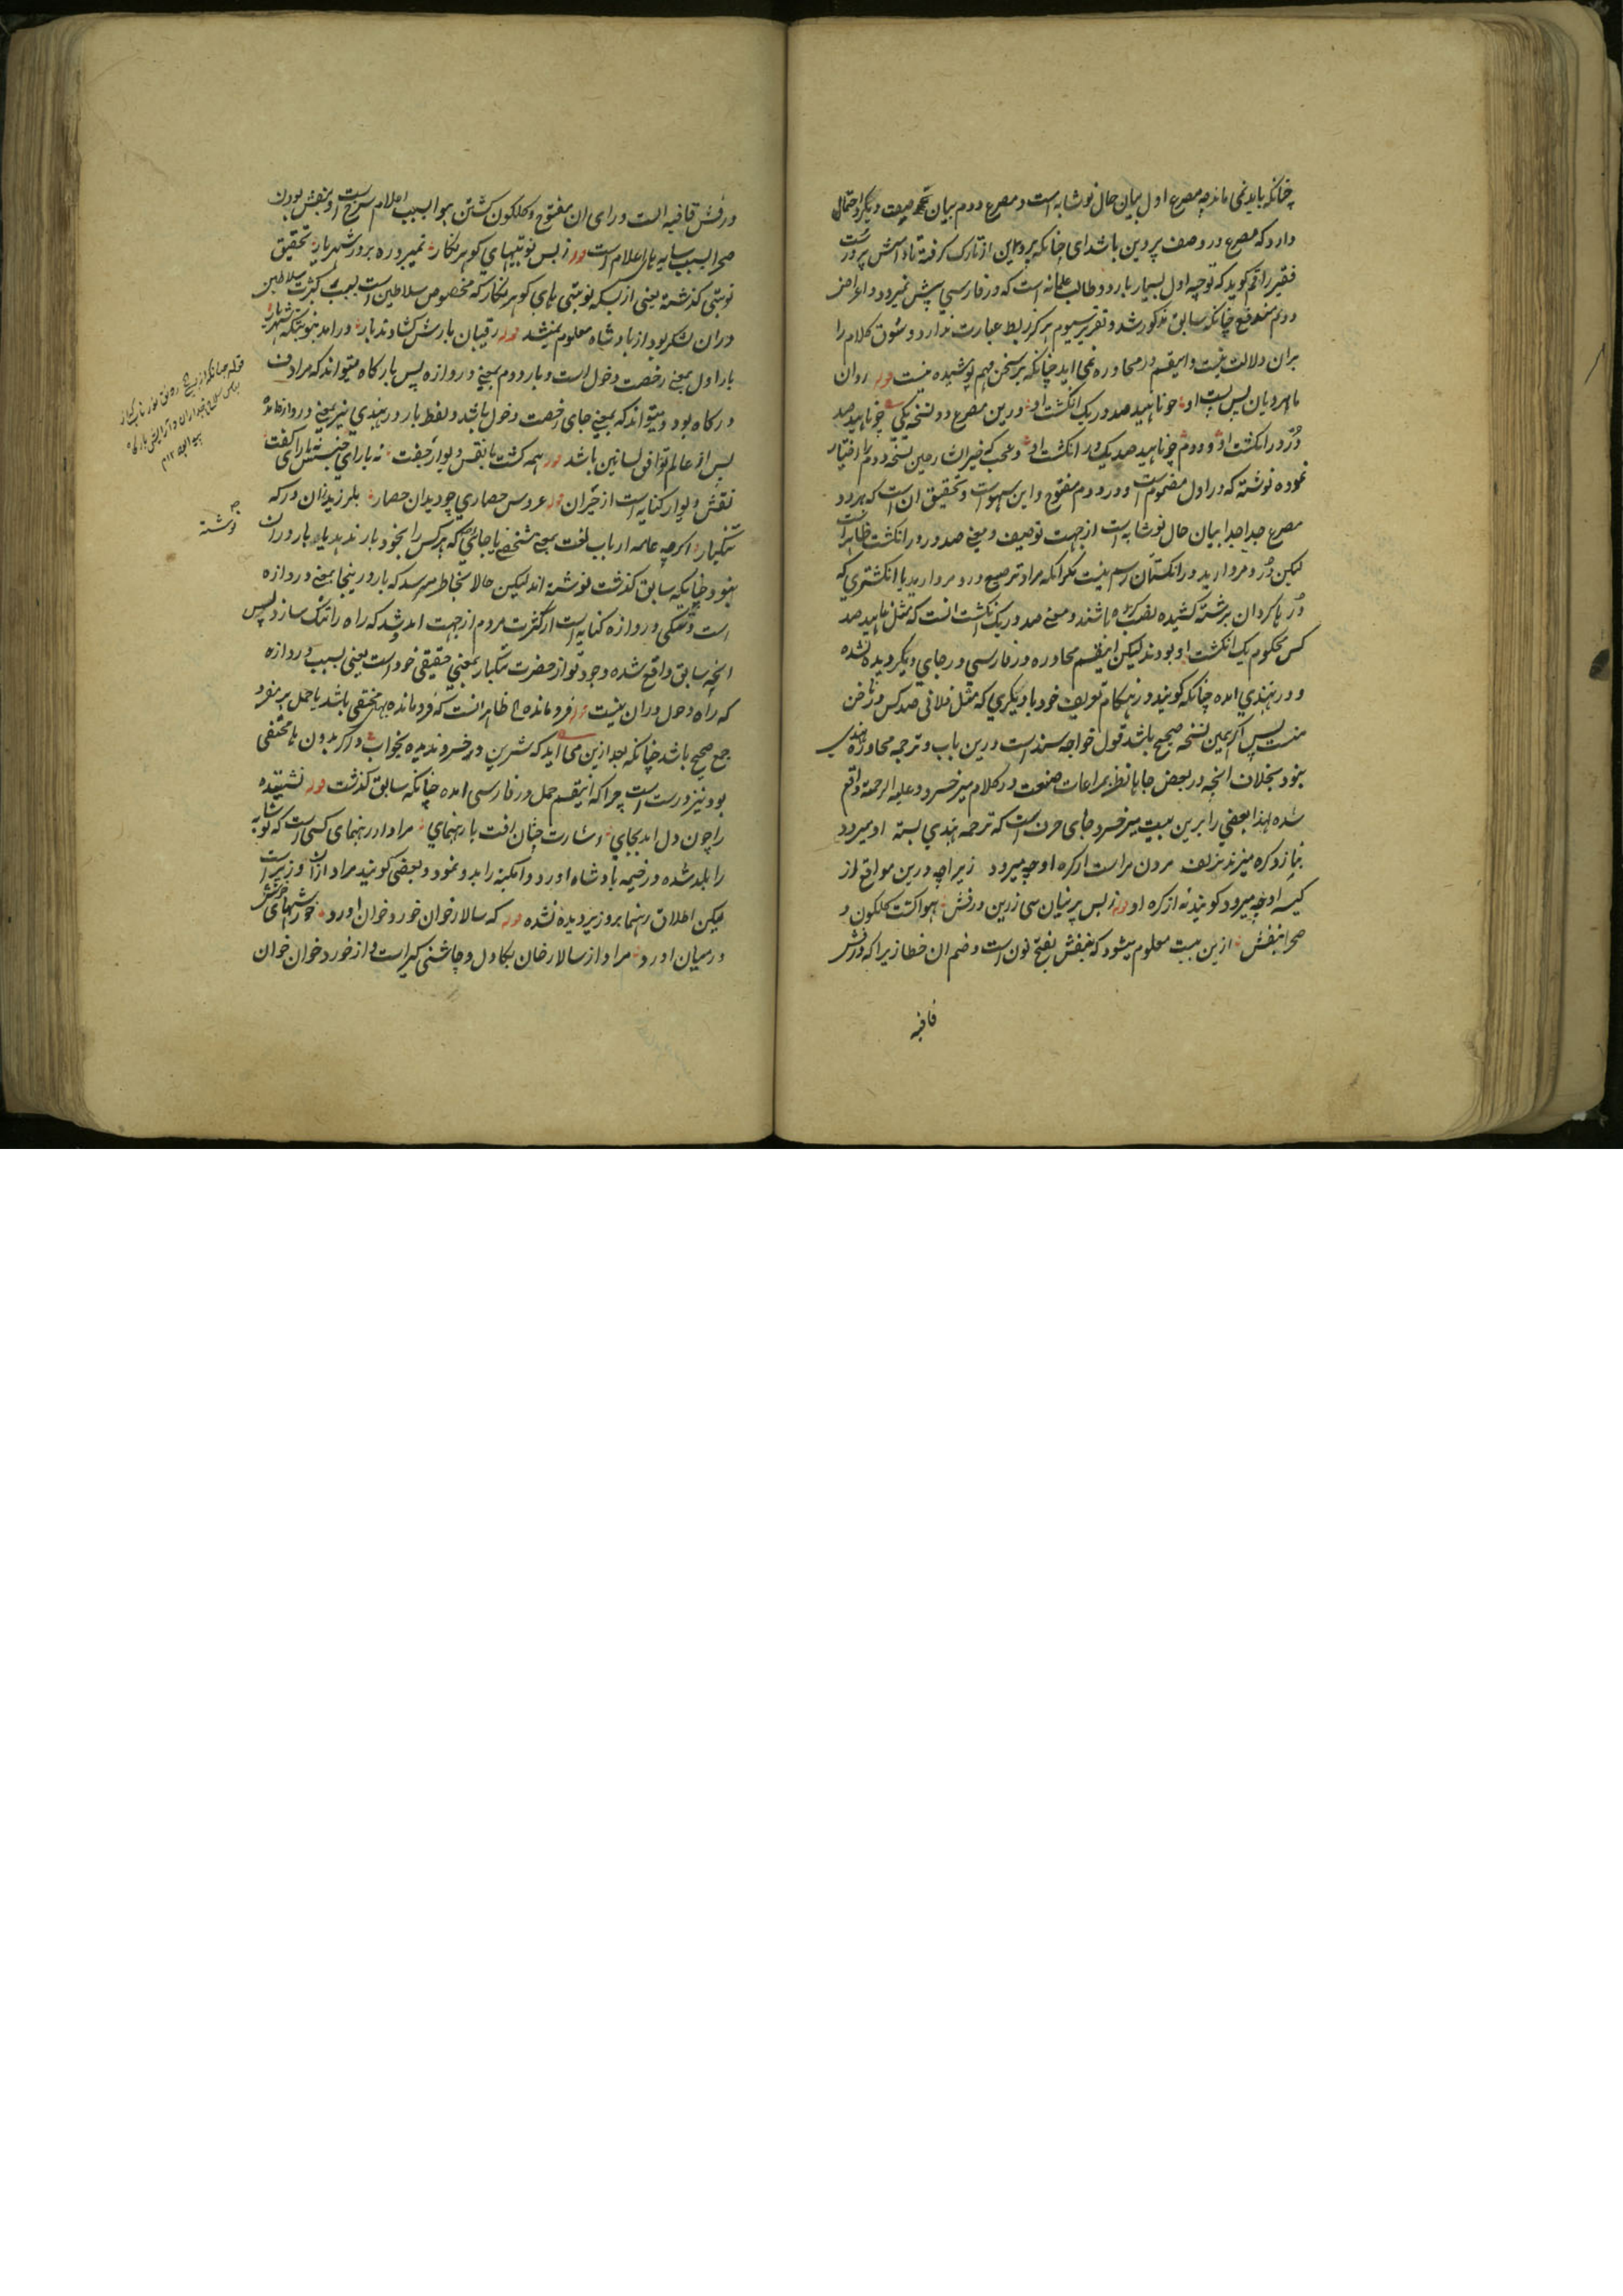 چنانکه باید نمی ماند چه مصرع اول بیان حال نوشابه است و مصرع دوم بیان صفت دیگر و احتمال
دارد که مصرع در وصف پروین باشد ای چنانکه پروین از تارک گرفته تا
فقیر راقم گوید که توجیه اول بسیار بارد و طالب علمانه است که در فارسی پیش نمیرود و اعراض
دوم مندفع چنانکه سابق مذکور شد و تقریر سیوم هرگز ربط عبارت ندارد و سوق کلام را
بران دلالت نیست و اینقسم در محاوره نمی اید چنانکه بر سخن فهم پوشیده نیست قوله روان
ماهرویان پس پشت او چو ناهید صد در یک انگشت او درین مصرع دو نسخه یکی چو ناهید صد
دُرّ در انگشت او و دوم چو ناهید صد یک در انگشت او و عجب که خیران رمین نسخه دوم را اختیار
نموده نوشته که در اول مضموم است و در دوم مفتوح و این سهو است و تحقیق ان است که هر دو
مصرع جدا جدا بیان حال نوشابه است از جهت توصیف و معنی صد در در انگشت ظاهر است
لیکن دُر و مروارید در انگشتان رسم نیست مگر انکه مراد ترصیع در و مروارید با انگشتری که
دُر با گردان برشته کشیده باشند و معنی صد در یک انگشت انست که مثل ناهید صد
کس محکوم یک انگشت او بودند لیکن اینقسم محاوره در فارسی در جای دیگر دیده نشده
و در هندی امده چنانکه گویند در هنگام تعریف خود با دیگری که مثل فلانی صد کس در ناخن
منست پس اگر همین نسخه صحیح باشد قول خواجه سند است درین باب و ترجمه محاوره هندی
بود بخلاف انچه در بعض جاها نظر بمراعات صنعت در کلام میر خسرو علیه الرحمة واقع
شده لهذا بعضی را برین بیت میر خسرو جای حرف است که ترجمه هندی بسته او میرود
بناز و گره میزند بزلف مردن مراست از گره او چه میرود زیرا چه درین مواقع از
کیسه او چه میرود گویند نه از گره او قوله ز بس پرنیان سی زرین درفش هوا گشت گلگون و
صحرا بنفش ازین بیت معلوم میشود که بنفش بفتح نون است و ضم ان خطا زیرا که درفش
قافیه
درفش قافیه است و رای ان مفتوح و گلگون گشتن هوا بسبب اعلام سرخ است و بنفش بودن
صحرا بسبب سایه های اعلام است قوله ز بس نوبتیهای گوهر نگار نمیبرد ره بر در شهریار تحقیق
نوبتی گذشته یعنی از بسکه نوبتی های گوهر نگار که مخصوص سلاطین است بسبب کثرت سلاطین
دران لشکر بود از بادشاه معلوم نمیشد قوله رقیبان بارش گشادند بار درامد بنوبتگه شهریار
بار اول بمعنی رخصت دخول است و بار دوم بمعنی دروازه پس بارگاه میتواند که مرادف
درگاه بود و میتواند که بمعنی جای رخصت دخول باشد و لفظ بار در هندی نیز بمعنی دروازه امده
پس از عالم توافق لسانین باشد قوله همه گشت با نقش دیوار جفت نه یارای جنبش نه یارای گفت
نقش دیوار کنایه است از حیران قوله عروس حصاری چو دید ان حصار بلرزید ازان درگه
تنگبار اگرچه عامه ارباب لغت بمعنی شخصی یا جائی که هر کس را بخود بار ندهد یا بار دران
بود چنانکه سابق گذشت نوشته اند لیکن حالا بخاطر میرسد که بار درینجا بمعنی دروازه
است و تنگی دروازه کنایه است از کثرت مردم از جهت امد و شد که راه را تنگ سازد پس
انچه سابق واقع شده وجود تو از حضرت تنگبار بمعنی حقیقی خود است یعنی بسبب دروازه
که راه دخول دران نیست قوله فرو مانده الخ ظاهر انست که فرو مانده بهای مختفی باشد یا حمل بر مفرد
جمع صحیح باشد چنانکه بعد ازین می اید که شیرین در خسرو ندیده بخواب و اگر بدون های مختفی
بود نیز درست است چرا که اینقسم حمل در فارسی امده چنانکه سابق گذشت قوله نشیننده
را چون دل امد بجای اشارت چنان رفت با رهنمای مراد از رهنمای کسی است که نوشابه
را بلد شده در خیمه بادشاه اورد و امکنه را بدو نمود و بعضی گویند مراد ازان وزیر است
لیکن اطلاق رهنما بر وزیر دیده نشده قوله که سالار خوان خورد خوان اورد خورشهای خوش
در میان اورد مراد از سالار خوان بکاول و چاشنی گیر است و از خورد خوان خوان
نوشته